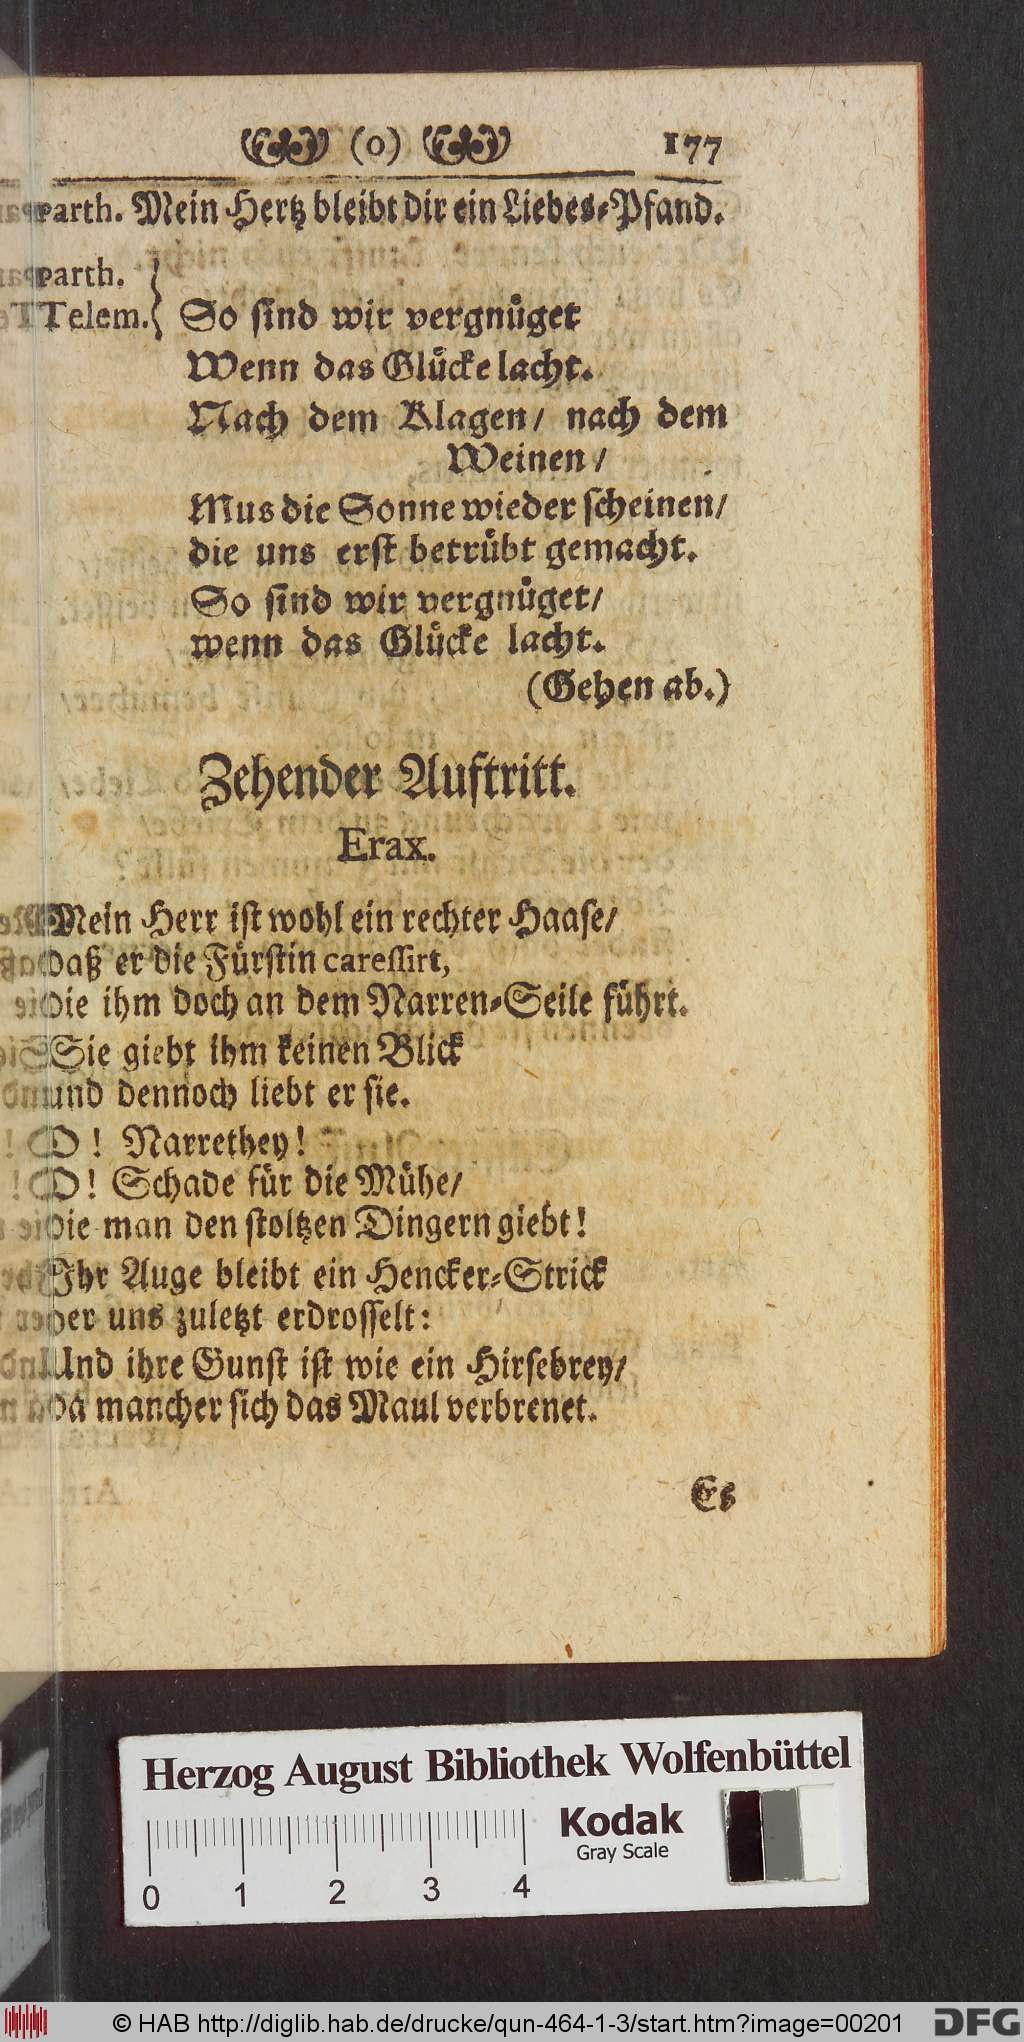 (o) 177
parth. Mein Hertz bleibt dir ein Liebes-Pfand.
parth.
Telem. } So sind wir vergnüget
Wenn das Glücke lacht.
Nach dem Klagen/ nach dem
Weinen/
Mus die Sonne wieder scheinen/
die uns erst betrübt gemacht.
So sind wir vergnüget/
wenn das Glücke lacht.
(Gehen ab.)
Zehender Auftritt.
Erax.
Mein Herr ist wohl ein rechter Haase/
daß er die Fürstin caressirt,
die ihm doch an dem Narren-Seile führt.
Sie giebt ihm keinen Blick
und dennoch liebt er sie.
O! Narrethey!
O! Schade für die Mühe/
die man den stoltzen Dingern giebt!
Ihr Auge bleibt ein Hencker-Strick
der uns zuletzt erdrosselt:
Und ihre Gunst ist wie ein Hirsebrey/
da mancher sich das Maul verbrenet.
Es
Herzog August Bibliothek Wolfenbüttel
Kodak
Gray Scale
0 1 2 3 4
© HAB http://diglib.hab.de/drucke/qun-464-1-3/start.htm?image=00201 DFG